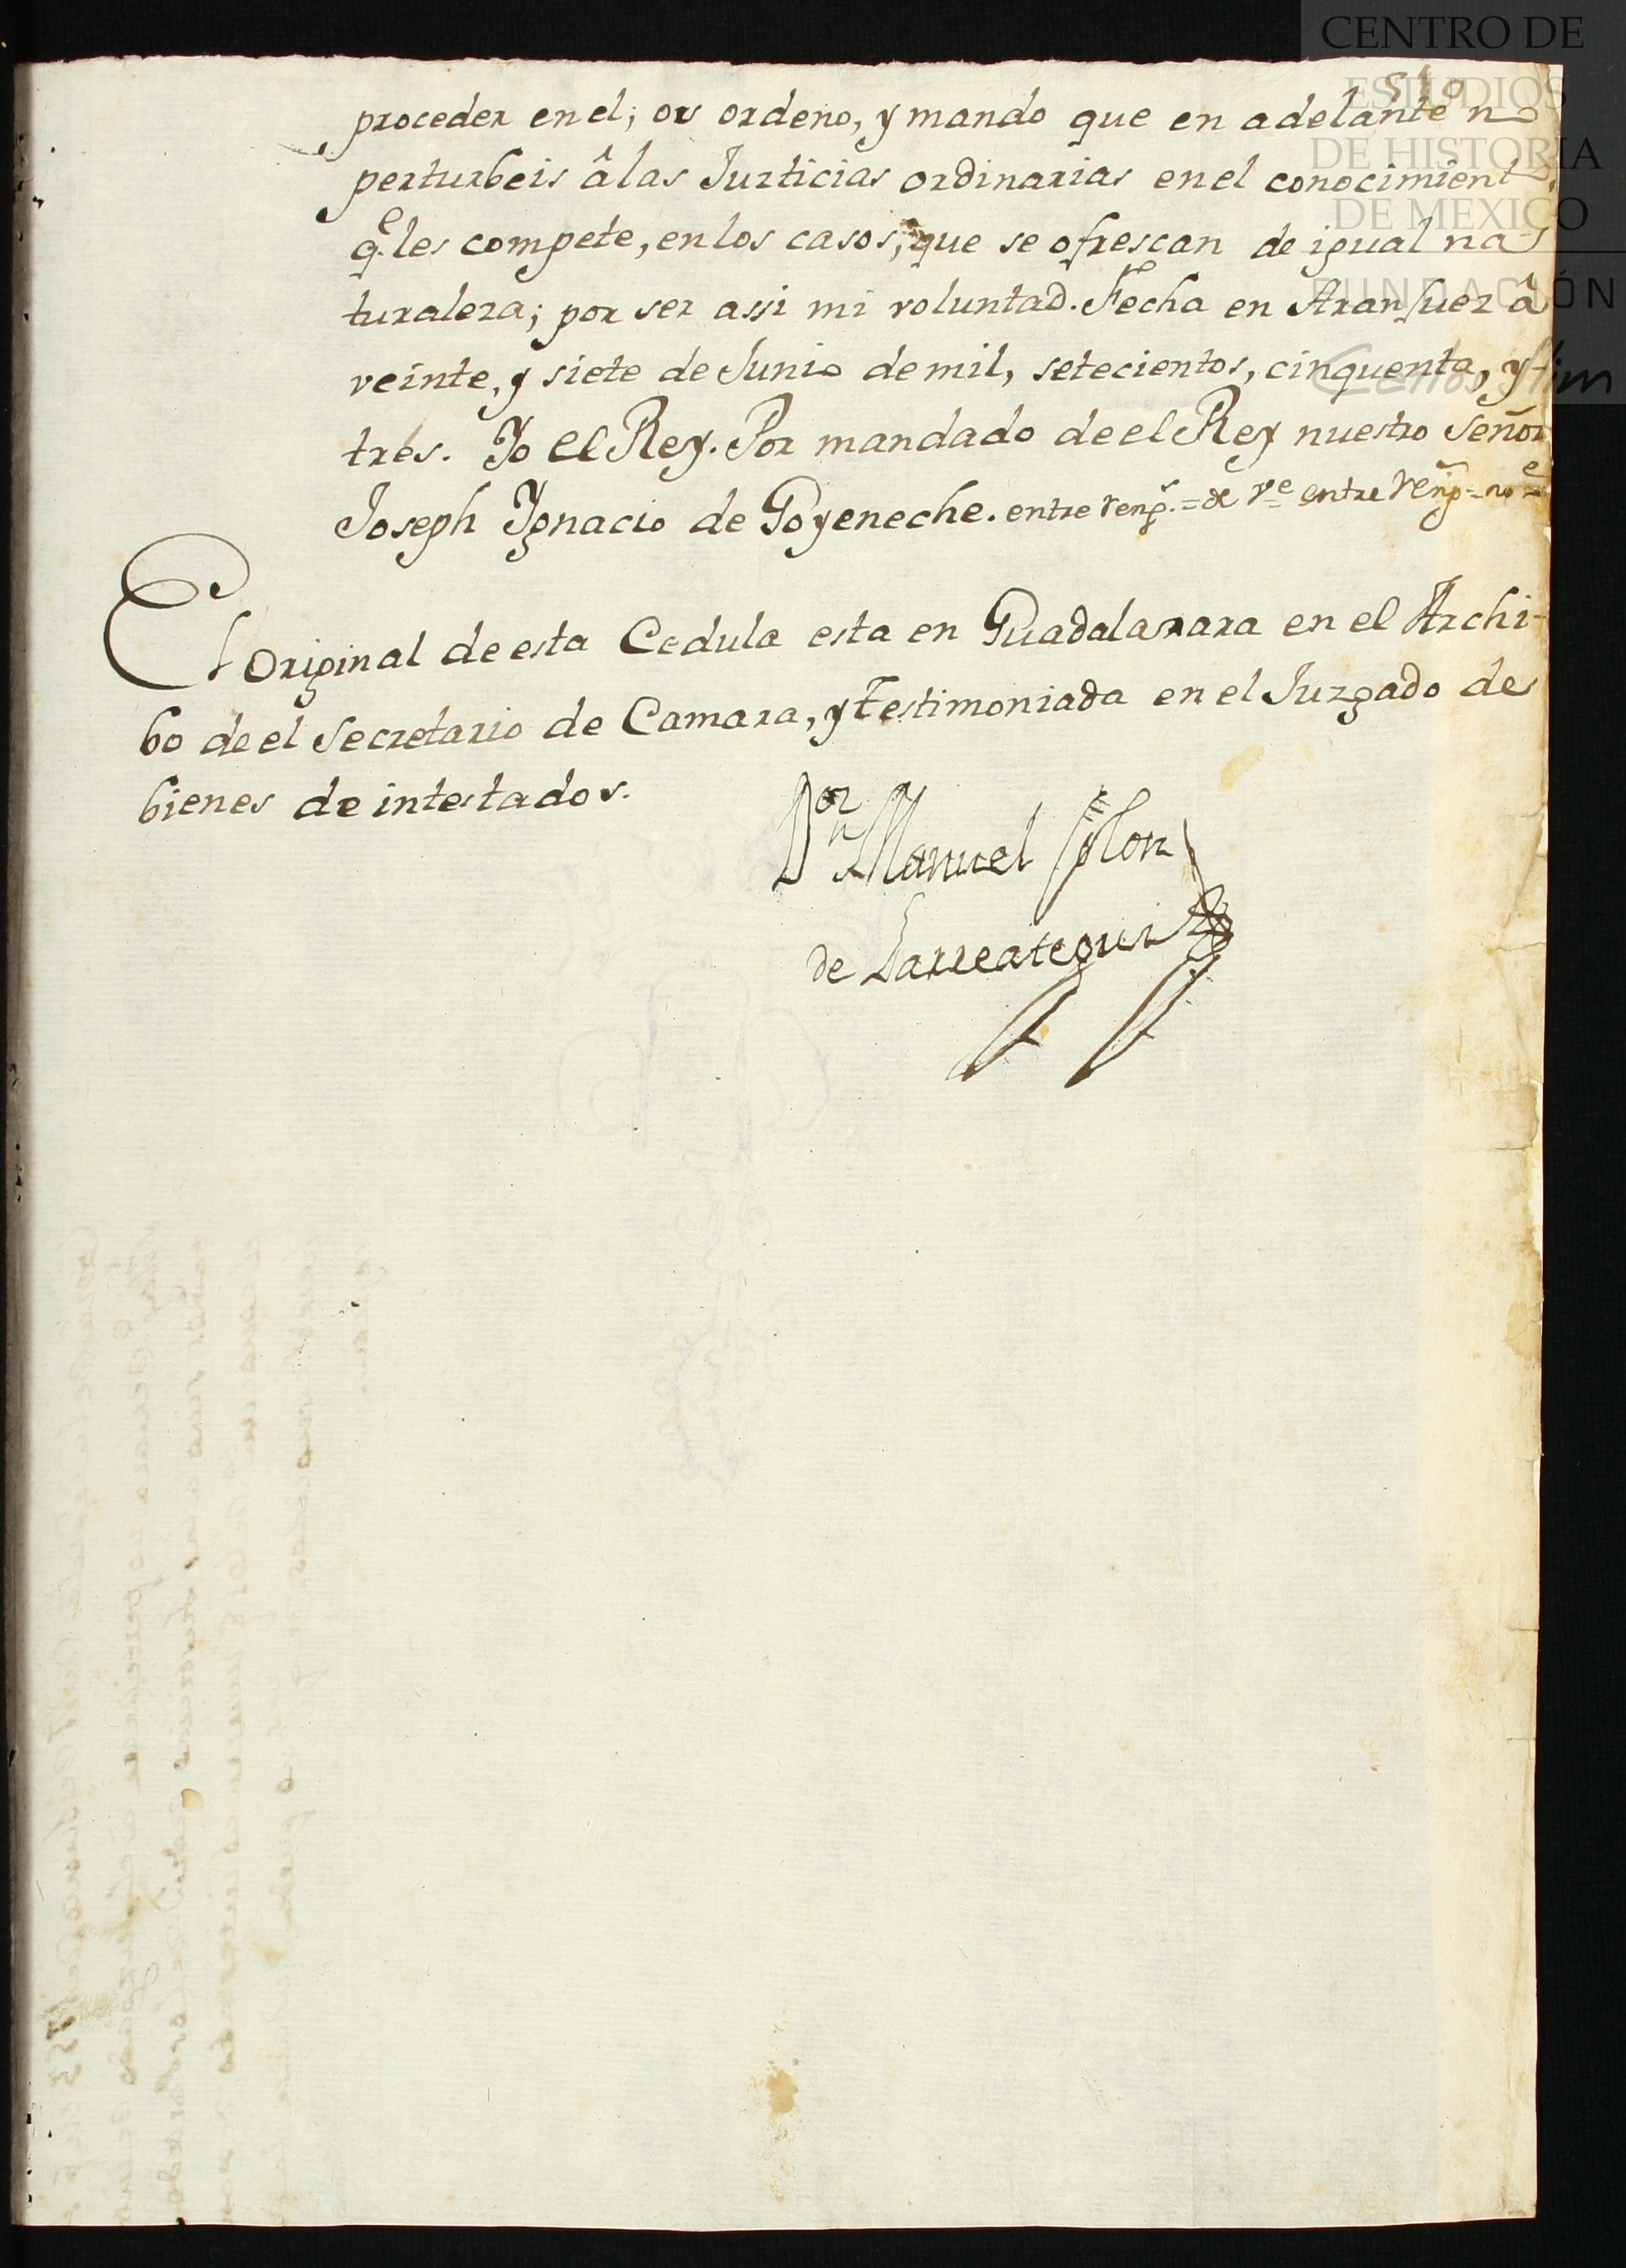 CENTRO DE
ESTUDIOS
DE HISTORIA
DE MEXICO
FUNDACIÓN
Carlos Slim
510
proceder en el; os ordeno, y mando que en adelante no
perturbeis â las Justicias ordinarias en el conocimient.
q.e les compete, en los casos, que se ofrescan de igual na-
turaleza; por ser assi mi voluntad. Fecha en Aranjuez â
veinte, y siete de Junio de mil, setecientos, cinquenta, y
tres. Yo el Rey. Por mandado de el Rey nuestro Señor
Joseph Ygnacio de Goyeneche. entre reng.s = de Ve entre reng = no
El Original de esta Cedula esta en Guadalaxara en el Archi-
bo de el Secretario de Camara, y testimoniada en el Juzgado de
bienes de intestados.
Dor
Dn Manuel Colon
de Larreategui